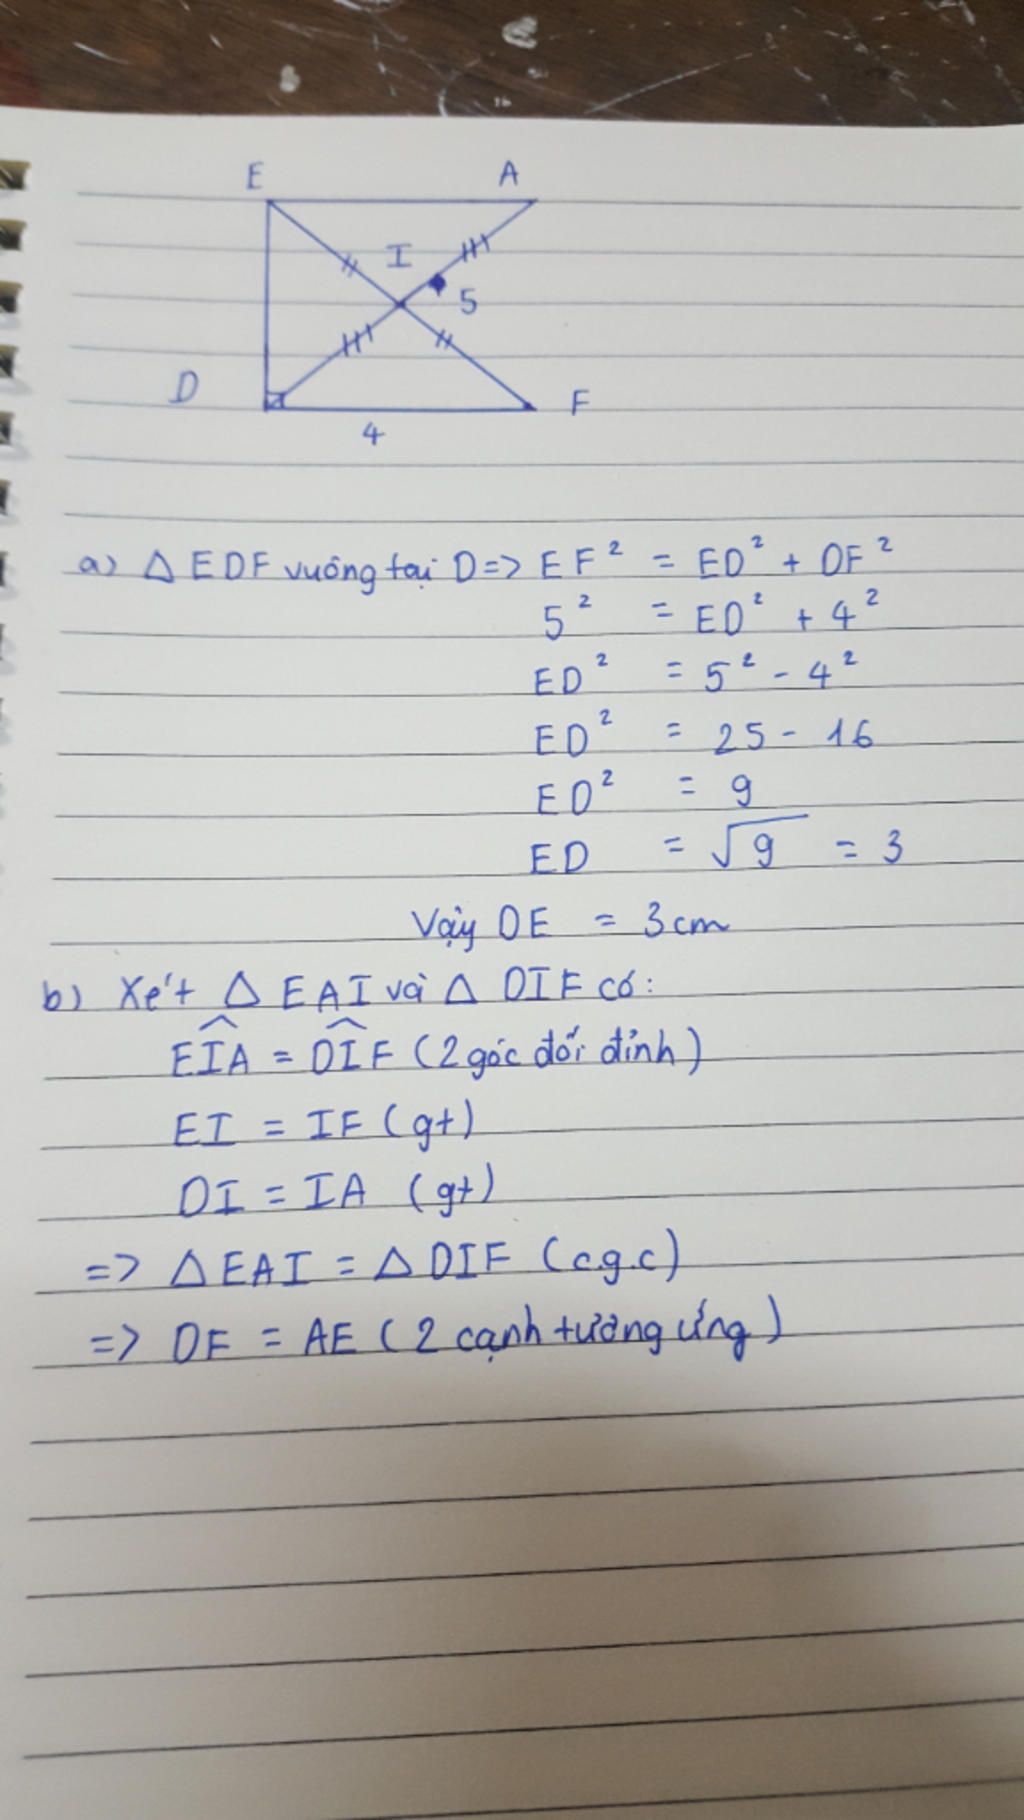 E A
I
5
D F
4
a) △EDF vuông tại D => EF² = ED² + DF²
5² = ED² + 4²
ED² = 5² - 4²
ED² = 25 - 16
ED² = 9
ED = √9 = 3
Vậy DE = 3cm
b) Xét △EAI và △DIF có:
EÎA = DÎF (2 góc đối đỉnh)
EI = IF (gt)
DI = IA (gt)
=> △EAI = △DIF (c.g.c)
=> DF = AE (2 cạnh tương ứng)